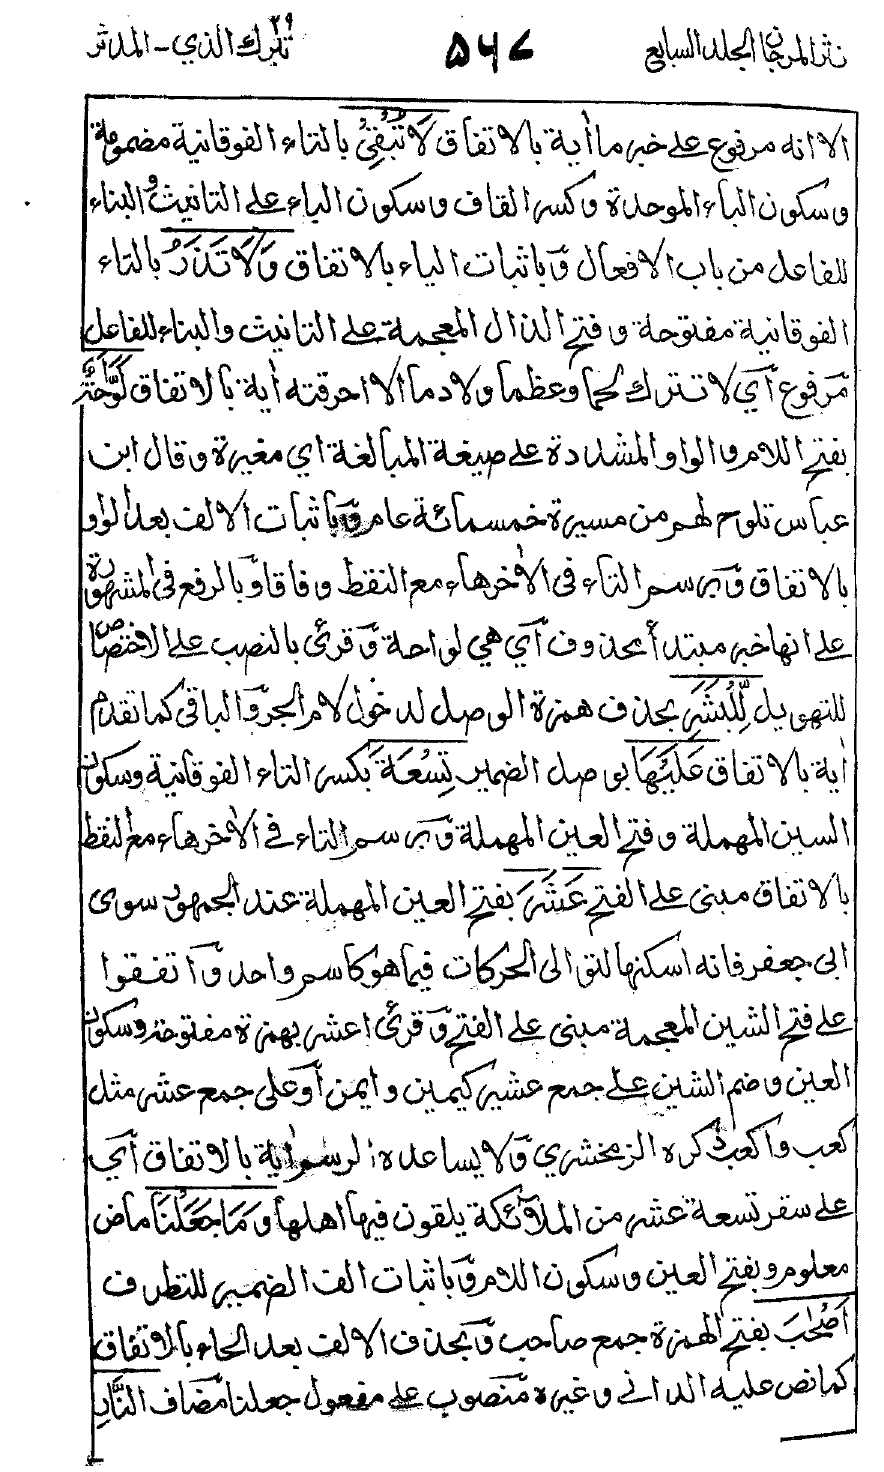 نثر المرجان الجلد السابع
٥٦٧
تبٰرك الذي - المدثر
٢٩
الا انه مرفوع على خبر ما اٰية بالاتفاق لَا تُبْقِيْ بالتاء الفوقانية مضمومة
وسكون الباء الموحدة وكسر القاف وسكون الياء على التانيث والبناء
للفاعل من باب الافعال وَباثبات الياء بالاتفاق وَلَا تَذَرُ بالتاء
الفوقانية مفتوحة وفتح الذال المعجمة على التانيث والبناء للفاعل
مرفوع اَي لا تترك لحما وعظما ولا دما الا احرقته اٰية بالاتفاق لَوَّاحَةٌ
بفتح اللام والواو المشددة على صيغة المبالغة اي مغيرة وقال ابن
عباس تلوح لهم من مسيرة خمسمائة عام وَباثبات الالف بعد الواو
بالاتفاق وَبرسم التاء في الاٰخر هاء مع النقط وفاقا وَبالرفع في المشهورة
على انها خبر مبتدأ محذوف اَي هي لواحة وَقرئ بالنصب على الاختصاص
للتهويل لِّلْبَشَرِ بحذف همزة الوصل لدخول لام الجر وَالباقي كما تقدم
اٰية بالاتفاق عَلَيْهَا بوصل الضمير تِسْعَةَ بكسر التاء الفوقانية وسكون
السين المهملة وفتح العين المهملة وَبرسم التاء في الاٰخر هاء مع النقط
بالاتفاق مبنى على الفتح عَشَرَ بفتح العين المهملة عند الجمهور سوى
ابى جعفر فانه اسكنها لتوالى الحركات فيما هو كاسم واحد وَاتفقوا
على فتح الشين المعجمة مبنى على الفتح وَقرئ اعشر بهمزة مفتوحة وسكون
العين وضم الشين على جمع عشير كيمين وايمن اَو على جمع عشر مثل
كعب واكعب ذكره الزمخشري وَلا يساعده الرسم اٰية بالاتفاق اَي
على سقر تسعة عشر من الملآئكة يلقون فيها اهلها وَمَا جَعَلْنَا ماض
معلوم وبفتح العين وسكون اللام وَباثبات الف الضمير للتطرف
اَصْحٰبَ بفتح الهمزة جمع صاحب وَبحذف الالف بعد الحاء بالاتفاق
كما نص عليه الدانى وغيره منصوب على مفعول جعلنا مضاف النَّارِ